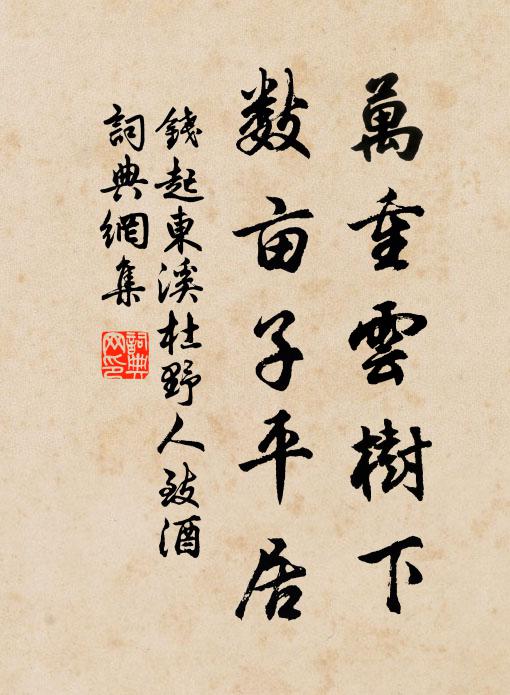 萬重雲樹下
数亩子平居
錢起東溪杜野人致酒
詞典網集
詞典网印